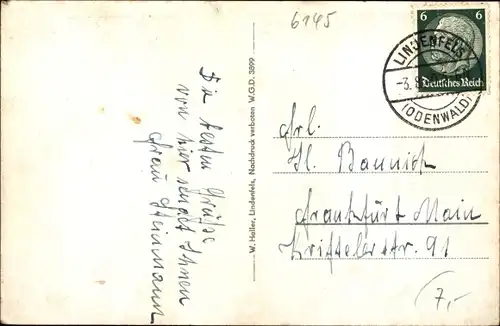 6145
Die besten Grüße
von hier sendet Ihnen
Frau Steinmann
W. Haller, Lindenfels, Nachdruck verboten W.G.D. 3899
6 6
Deutsches Reich
LINDENFELS
-3.8.
(ODENWALD)
Frl.
Bannich
Frankfurt Main
Kriftelerstr. 91
7,-